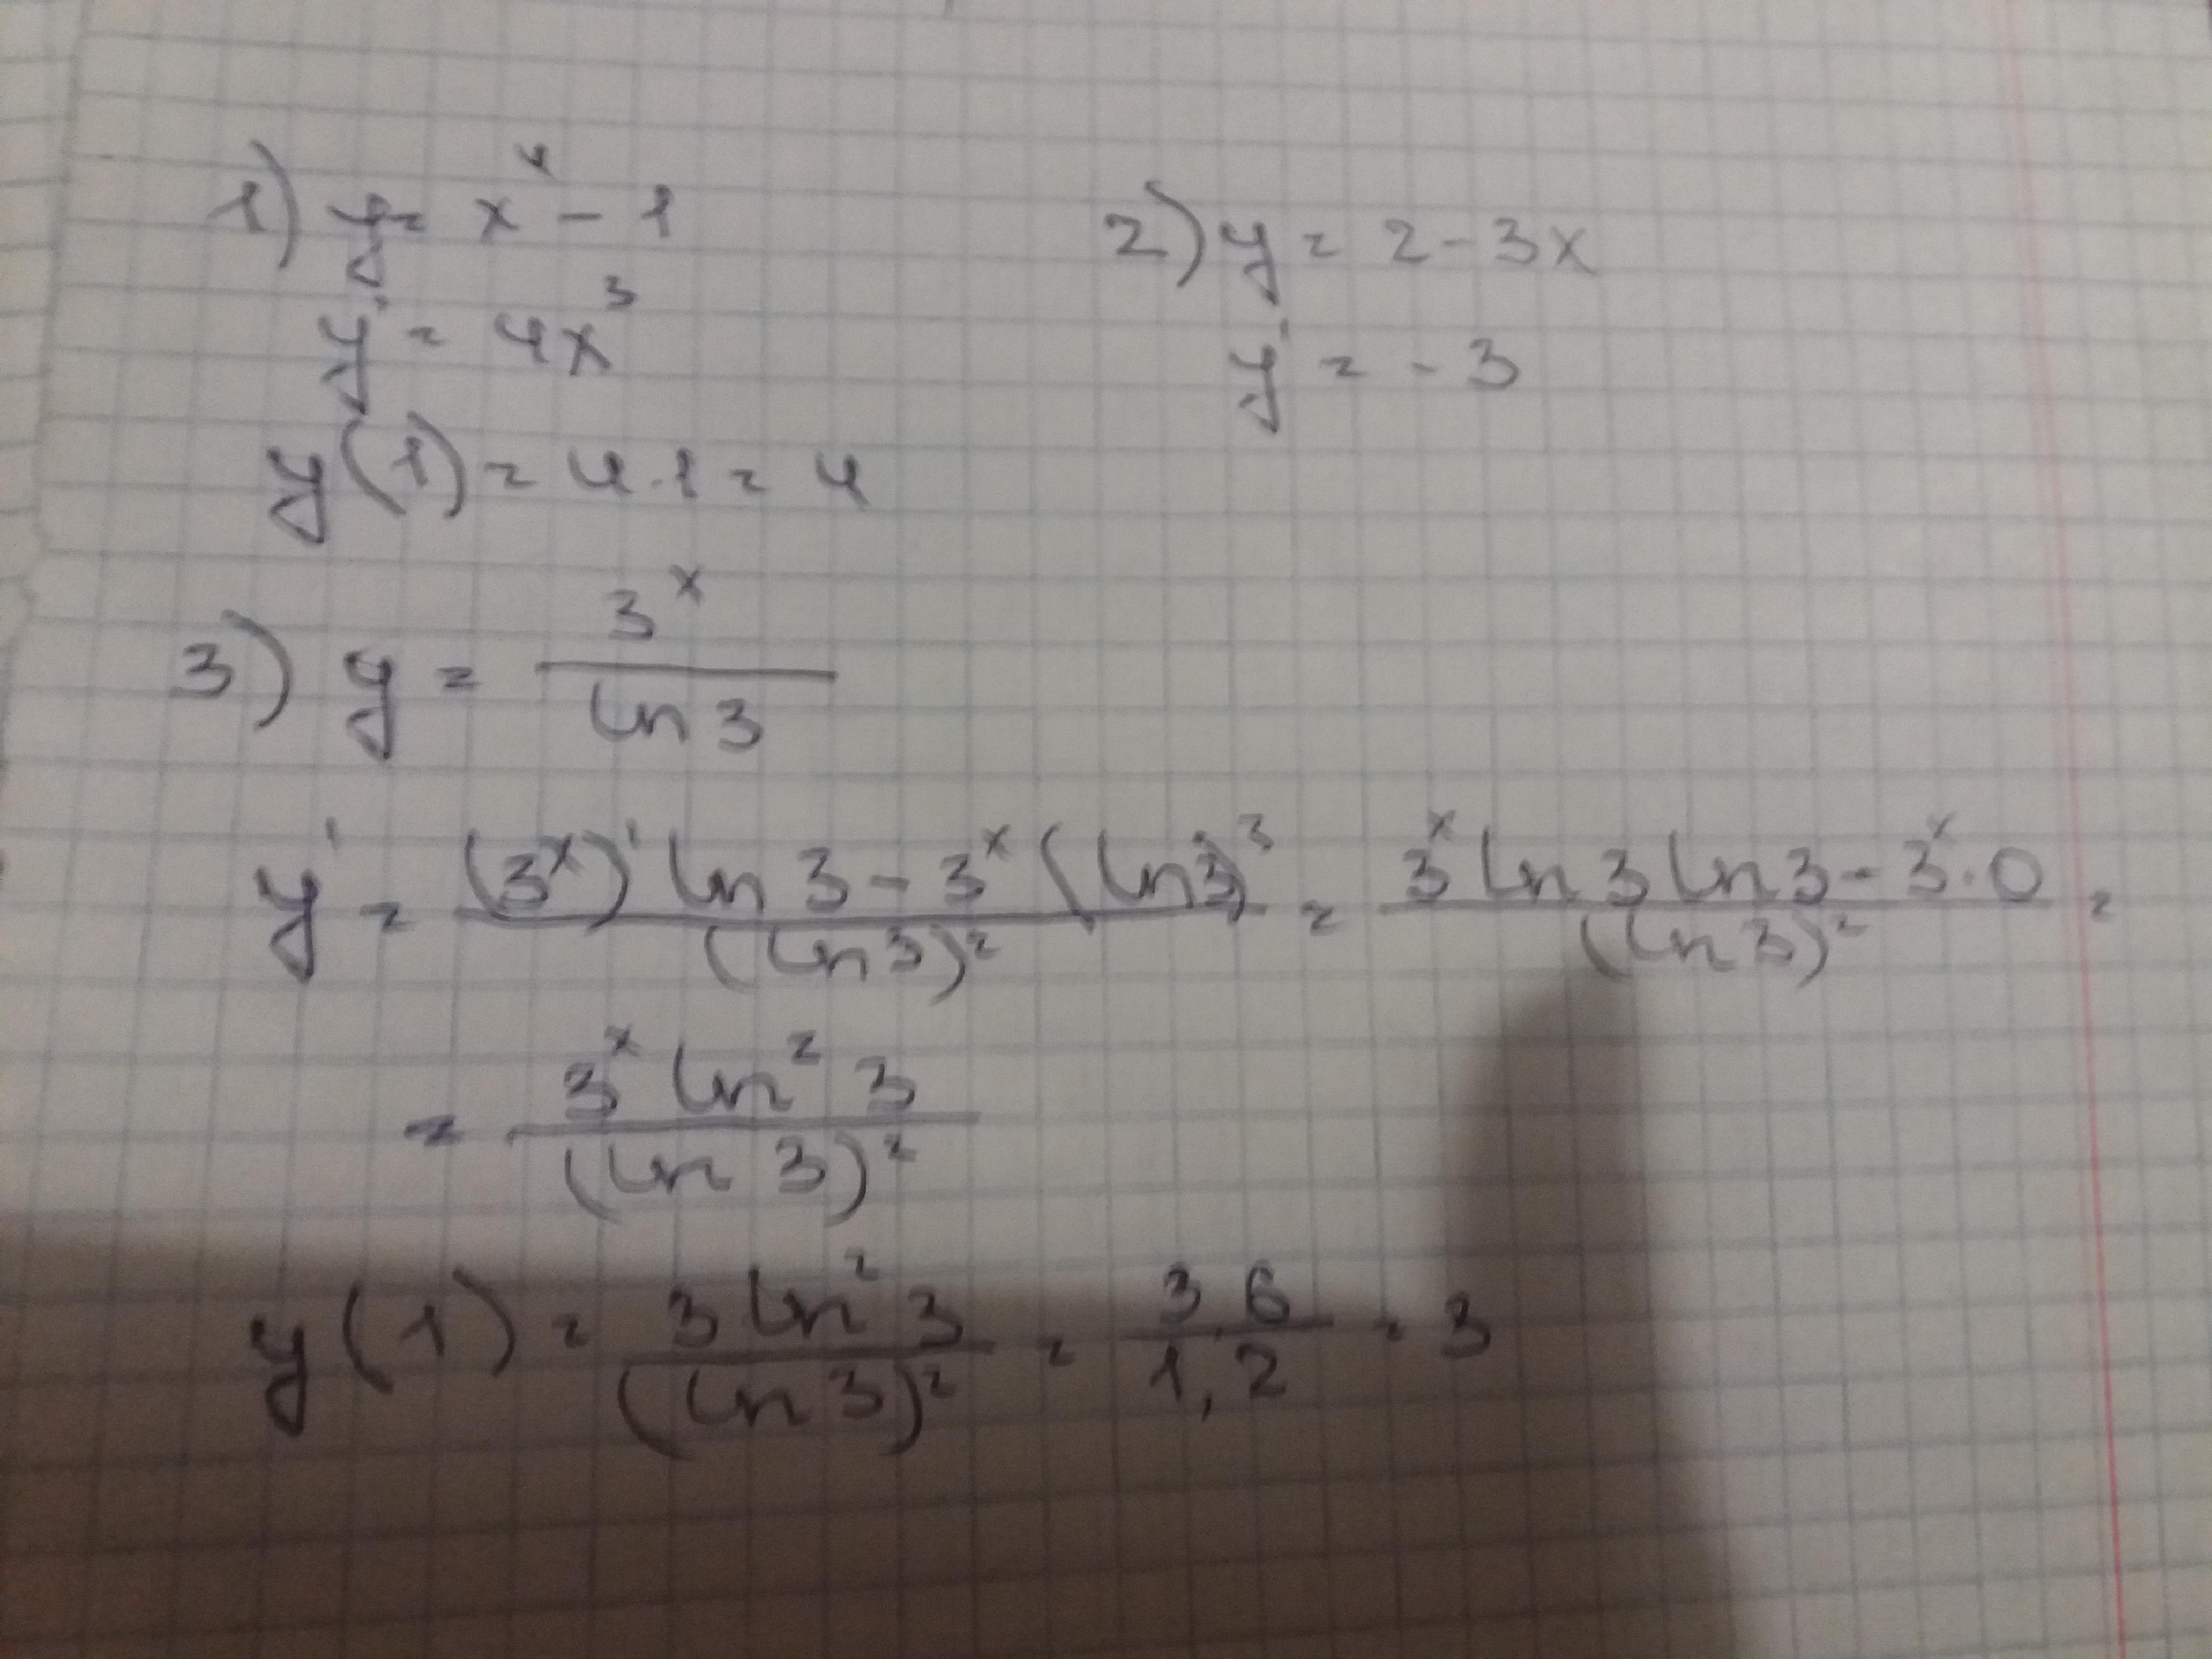 1) y = x⁴ - 1
y' = 4x³
y(1) = 4 · 1 = 4
2) y = 2 - 3x
y' = - 3
3) y = 3ˣ / ln 3
y' = (3ˣ)' ln 3 - 3ˣ (ln 3)' / (ln 3)² = 3ˣ ln 3 ln 3 - 3ˣ · 0 / (ln 3)² =
= 3ˣ ln² 3 / (ln 3)²
y(1) = 3 ln² 3 / (ln 3)² = 3,6 / 1,2 = 3